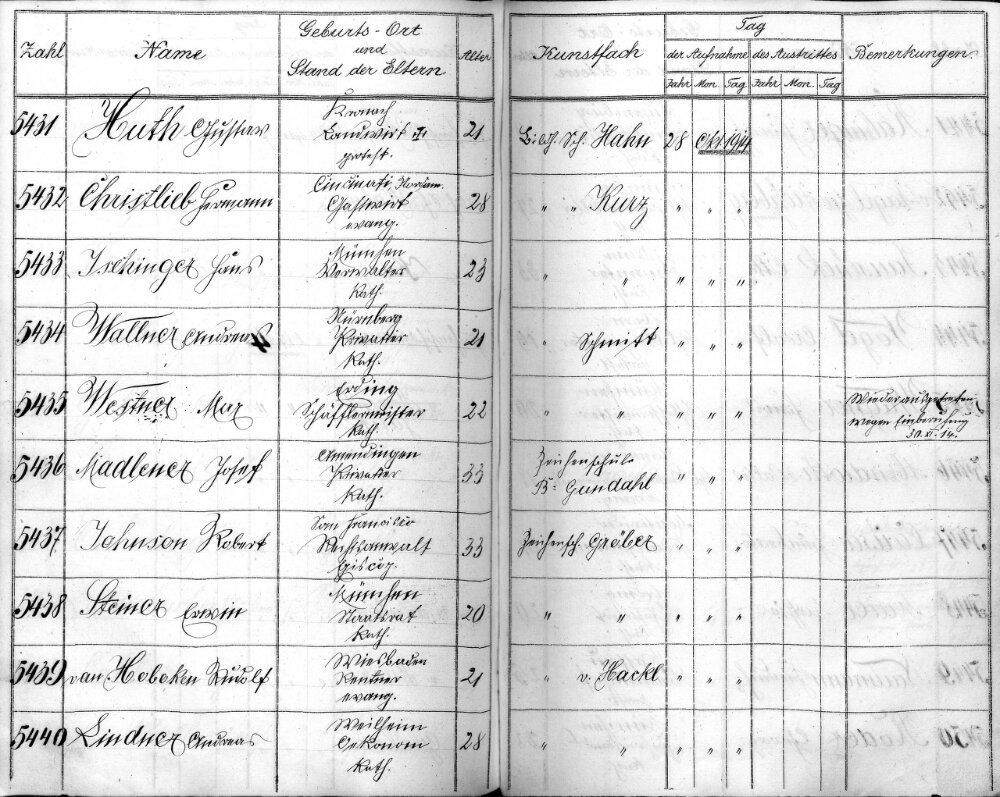 Zahl Name Geburts-Ort und Stand der Eltern Alter Kunstfach Tag der Aufnahme des Austrittes Bemerkungen
Jahr Mon. Tag Jahr Mon. Tag
Kronach
5431 Huth Gustav Landwirt 21 Bildh. Sch. Hahn 28 Okt 1914
protest.
Cincinati,
5432 Christlieb Hermann Gastwirt 28 " " Kurz " " "
evang.
München
5433 Ischinger Hans Verwalter 23 " " " " "
Kath.
Nürnberg
5434 Wallner Andreas Privatier 21 Schmitt " " "
Kath.
Erding
5435 Westner Max Schäfflermeister 22 " " " " " Wieder ausgetreten
Kath. wegen Einberufung
30.XI.14.
Amendingen
5436 Madlener Josef Privatier 33 Zeichenschule " " "
Kath. B. Gundahl
San Francisco
5437 Johnson Robert Rechtsanwalt 33 Zeichensch. Gröber " " "
Episcop.
München
5438 Steiner Erwin Staatsrat 20 " " " " "
Kath.
Wiesbaden
5439 van Hoboken Rudolf Rentner 21 " v. Hackl " " "
evang.
Weilheim
5440 Lindner Andreas Oekonom 28 " " " " "
Kath.